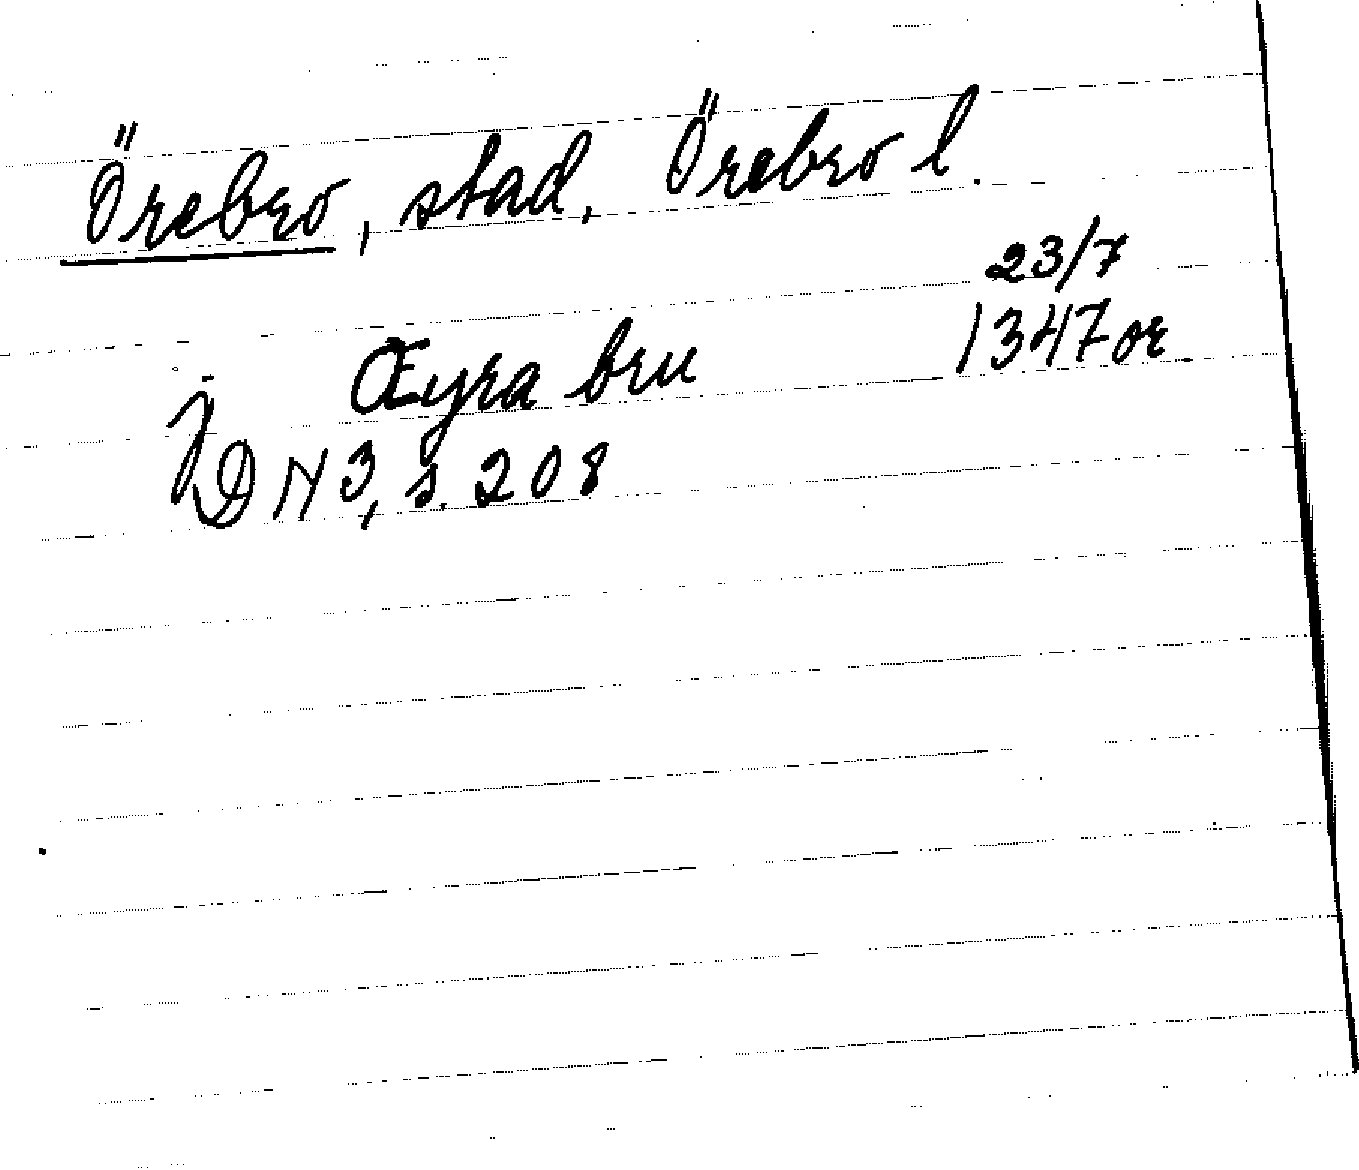 Örebro, stad, Örebro l.
23/7
Œyra bru 1347 or
DN 3, s. 208